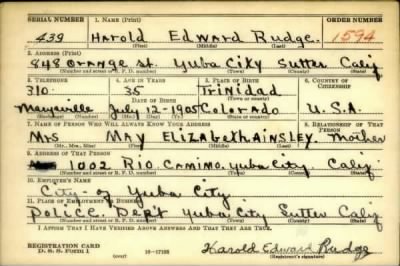 SERIAL NUMBER 1. NAME (Print) ORDER NUMBER
439 Harold Edward Rudge. 1594
(First) (Middle) (Last)
2. ADDRESS (Print)
848 Orange St. Yuba City Sutter Calif
(Number and street or R. F. D. number) (Town) (County) (State)
3. TELEPHONE 4. AGE IN YEARS 5. PLACE OF BIRTH 6. COUNTRY OF CITIZENSHIP
310 35 Trinidad
DATE OF BIRTH (Town or county)
Marysville July-12-1905 Colorado U.S.A.
(Exchange) (Mo.) (Day) (Yr.) (State or country)
7. NAME OF PERSON WHO WILL ALWAYS KNOW YOUR ADDRESS 8. RELATIONSHIP OF THAT PERSON
Mrs May Elizabeth Ainsley. Mother
(Mr., Mrs., Miss) (First) (Middle) (Last)
9. ADDRESS OF THAT PERSON
1002 Rio. Camino. Yuba City Calif
(Number and street or R. F. D. number) (Town) (County) (State)
10. EMPLOYER'S NAME
City-of Yuba City
11. PLACE OF EMPLOYMENT OR BUSINESS
Police. Dep't Yuba City Sutter Calif
(Number and street or R. F. D. number) (Town) (County) (State)
I AFFIRM THAT I HAVE VERIFIED ABOVE ANSWERS AND THAT THEY ARE TRUE.
REGISTRATION CARD
D. S. S. Form 1 16-17105 Harold Edward Rudge
(Registrant's signature)